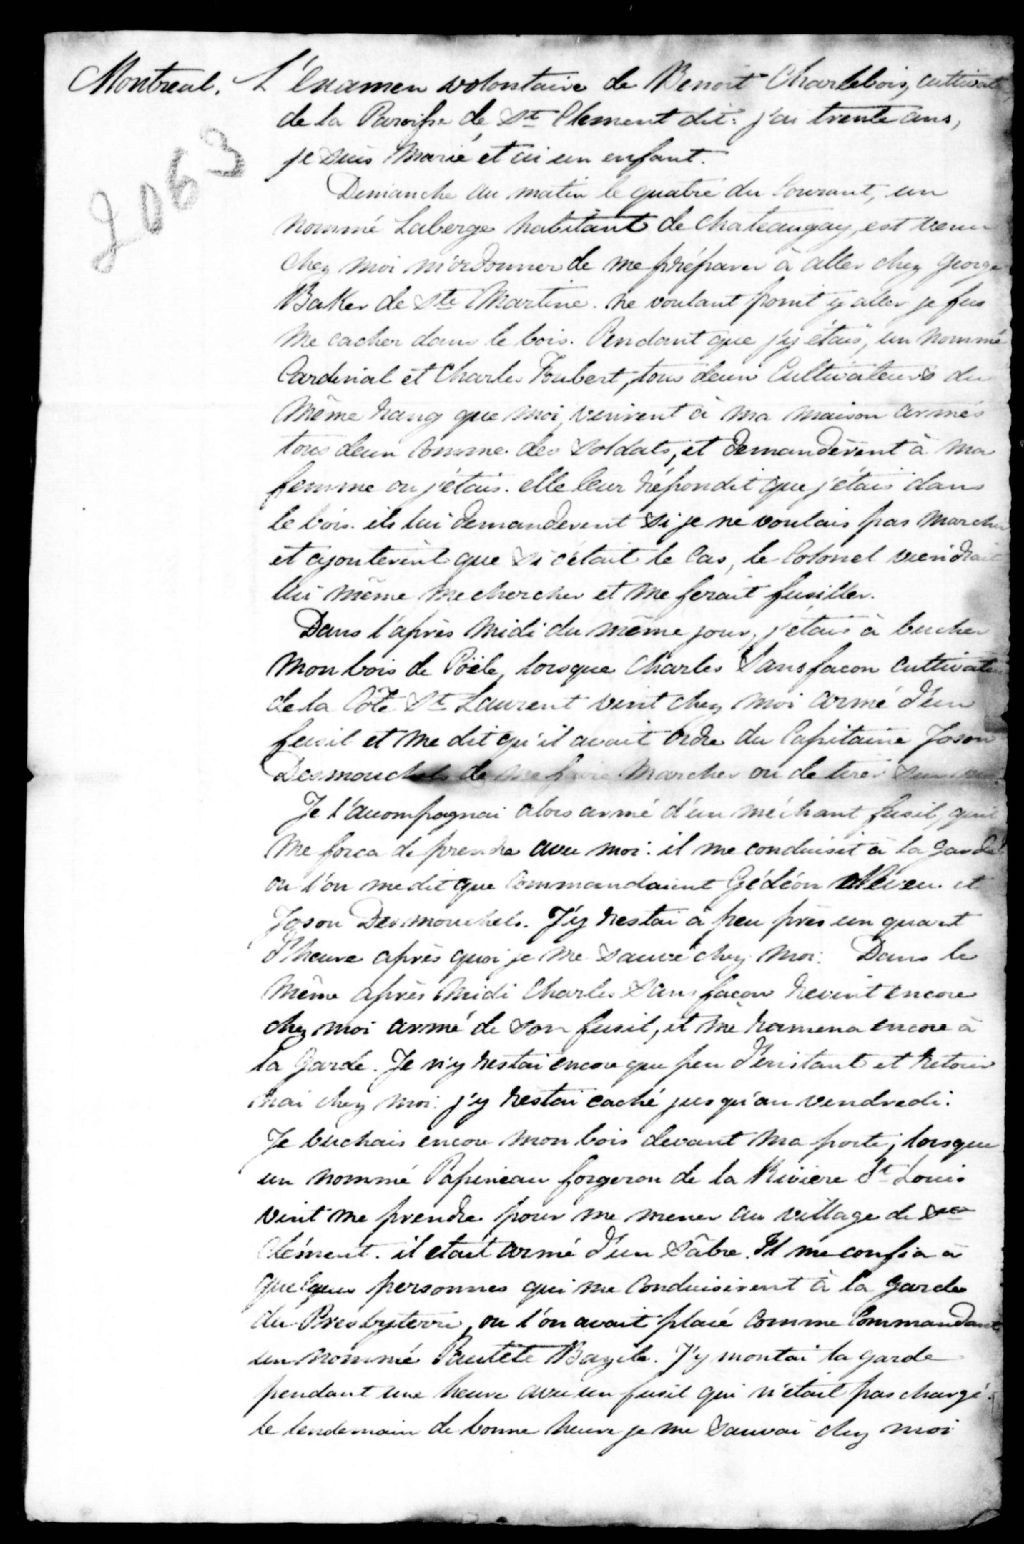 Montreal. L'Examen volontaire de Benoit Charlebois, cultivat
de la Paroisse de St Clement dit: j'ai trente ans,
je suis Marié et ai un enfant.
2063
Dimanche au matin le quatre du Courant, un
nommé Laberge habitant de Chateaugay, est venu
chez moi m'ordonner de me préparer à aller chez George
Baker de Ste Martine. ne voulant point y aller je fus
me cacher dans le bois. Pendant que j'y étais, un nommé
Cardinal et Charles Toubert, tous deux Cultivateurs du
Même rang que moi, vinrent à ma maison armés
tous deux comme des soldats, et demandèrent à ma
femme ou j'étais. elle leur répondit que j'étais dans
le bois. ils lui demanderent si je ne voulais pas marcher
et ajouterent que si c'était le Cas, le Colonel viendrait
lui même me chercher et me ferait fusiller.
Dans l'après Midi du même jour, j'étais à bucher
Mon bois de Poële, lorsque Charles Sansfacon cultivat
de la Côte St Laurent vint chez moi armé d'un
fusil et me dit qu'il avait ordre du Capitaine Joson
Desmouchels de me faire Marcher ou de tirer sur moi.
Je l'accompagnai alors armé d'un méchant fusil, qu'il
me forca de prendre avec moi. il me conduisit à la garde
ou l'on me dit que Commandaient Gédéon Neveu et
Joson Desmouchels. J'y restai à peu près un quart
d'heure après quoi je me sauvé chez moi. Dans le
même après Midi Charles Sansfaçon revint encore
chez moi armé de son fusil, et me ramena encore à
la Garde. Je n'y restai encore que peu d'instant et retour
nai chez moi. j'y restai caché jusqu'au vendredi.
Je buchais encore mon bois devant ma porte, lorsque
un nommé Papineau forgeron de la Rivière St Louis
vint me prendre pour me mener au village de St
Clément. il etait armé d'un Sâbre. Il me confia à
quelques personnes qui me conduisirent à la garde
du Presbyterre, ou l'on avait placé comme Commandant
un nommé Pautete Bazile. J'y montai la garde
pendant une heure avec un fusil qui n'était pas chargé.
le lendemain de bonne heure je me sauvai chez moi